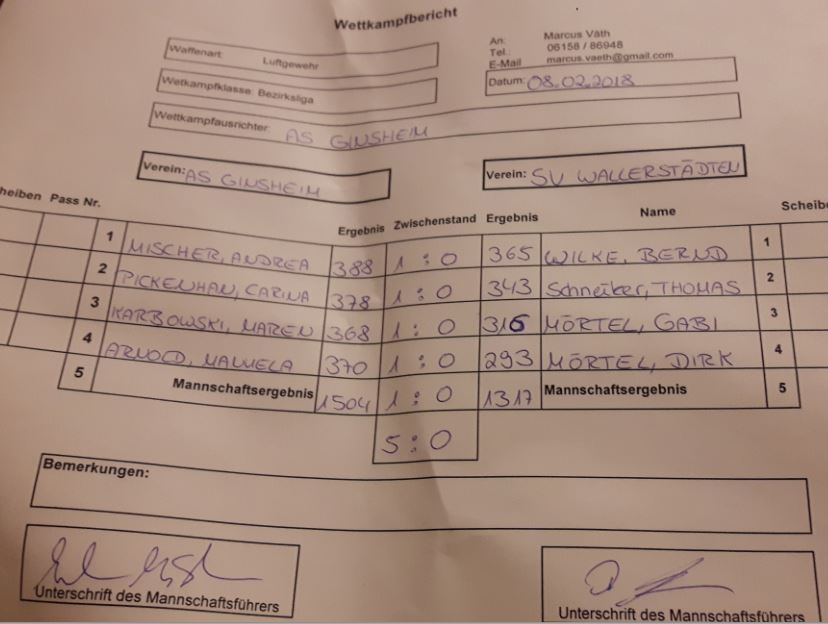 Wettkampfbericht
Waffenart: Luftgewehr
An: Marcus Väth
Tel.: 06158 / 86948
E-Mail marcus.vaeth@gmail.com
Wettkampfklasse: Bezirksliga
Datum: 08.02.2018
Wettkampfausrichter: AS GINSHEIM
Verein: AS GINSHEIM
Verein: SV WALLERSTÄDTEN
heiben Pass Nr. Ergebnis Zwischenstand Ergebnis Name Scheibe
1 MISCHER, ANDREA 388 1 : 0 365 WILKE, BERND 1
2 PICKENHAN, CARINA 378 1 : 0 343 Schneiker, THOMAS 2
3 KARBOWSKI, MAREN 368 1 : 0 316 MÖRTEL, GABI 3
4 ARNOLD, MANUELA 370 1 : 0 293 MÖRTEL, DIRK 4
5 Mannschaftsergebnis 1504 1 : 0 1317 Mannschaftsergebnis 5
5 : 0
Bemerkungen:
Unterschrift des Mannschaftsführers
Unterschrift des Mannschaftsführers